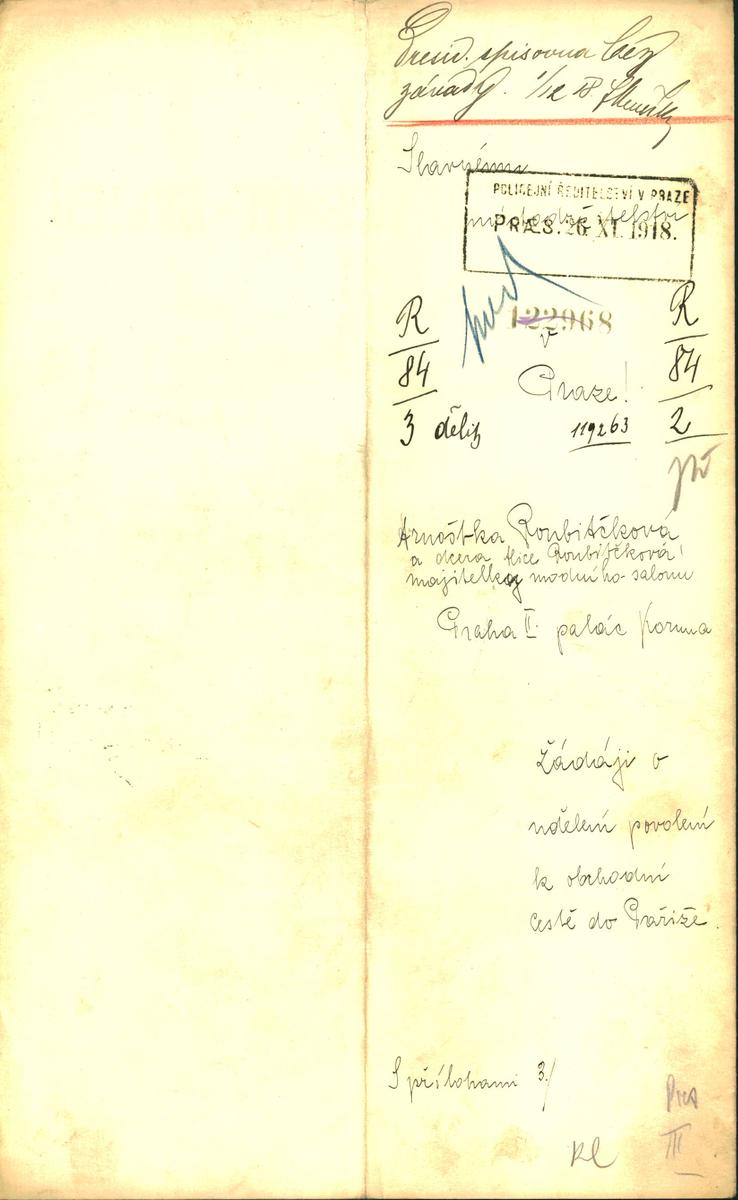 Presid. spisovna bez
závady. 1/12 18
Slavnému
POLICEJNÍ ŘEDITELSTVÍ V PRAZE
PRAES. 26 XI. 1918.
122968
v
Praze!
R
84
3 dělit
119263
R
84
2
Arnoštka Roubitčková
a dcera Alice Roubitčková
majitelky modního salonu
Praha II. palác Koruna
Žádáji o
udělení povolení
k obchodní
cestě do Paříže.
S přílohami 3./
III